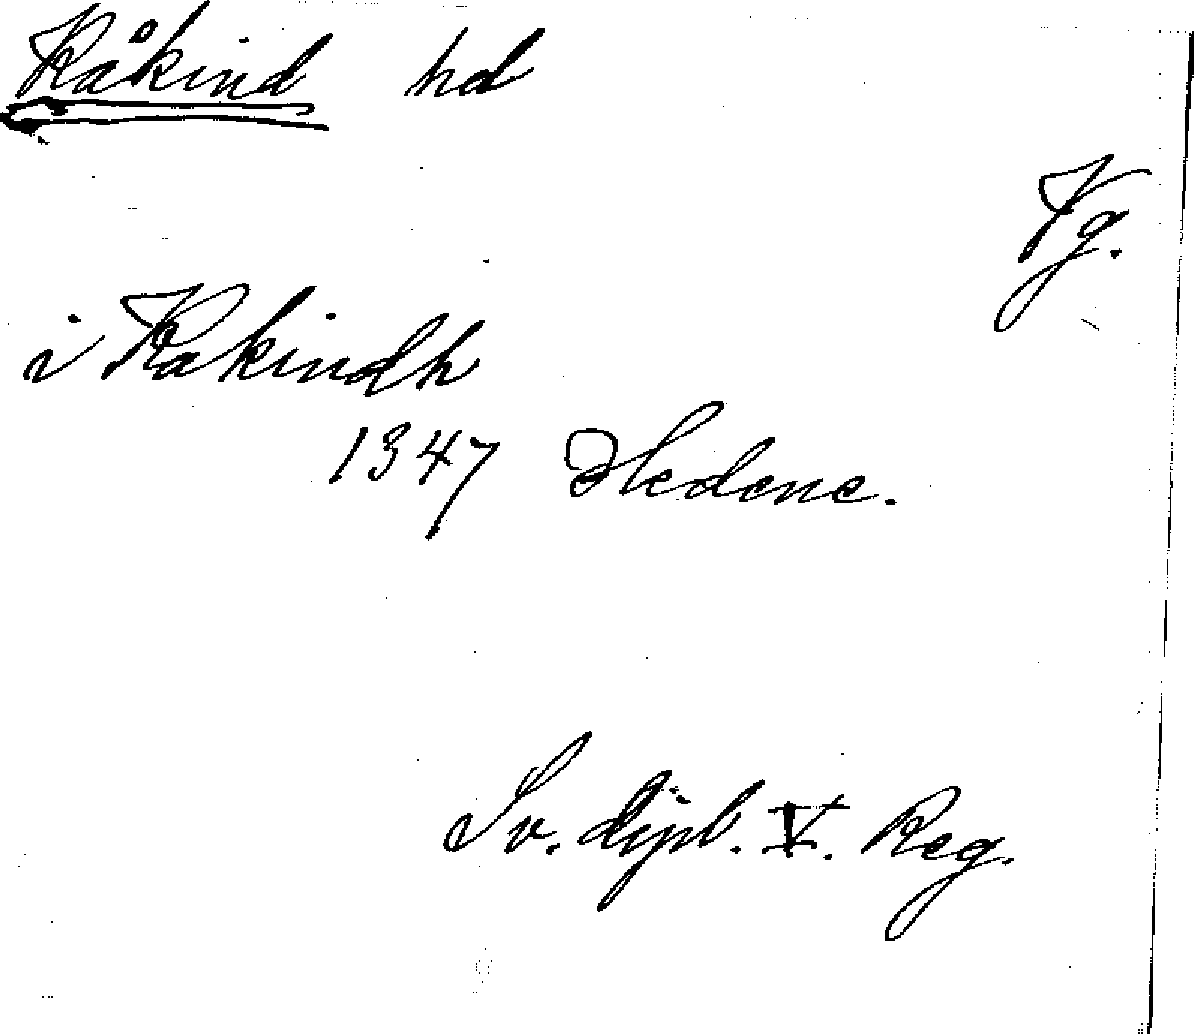 Kåkind hd
Vg.
i Kakindh
1347 Hedene.
Sv. dipl. V. Reg.